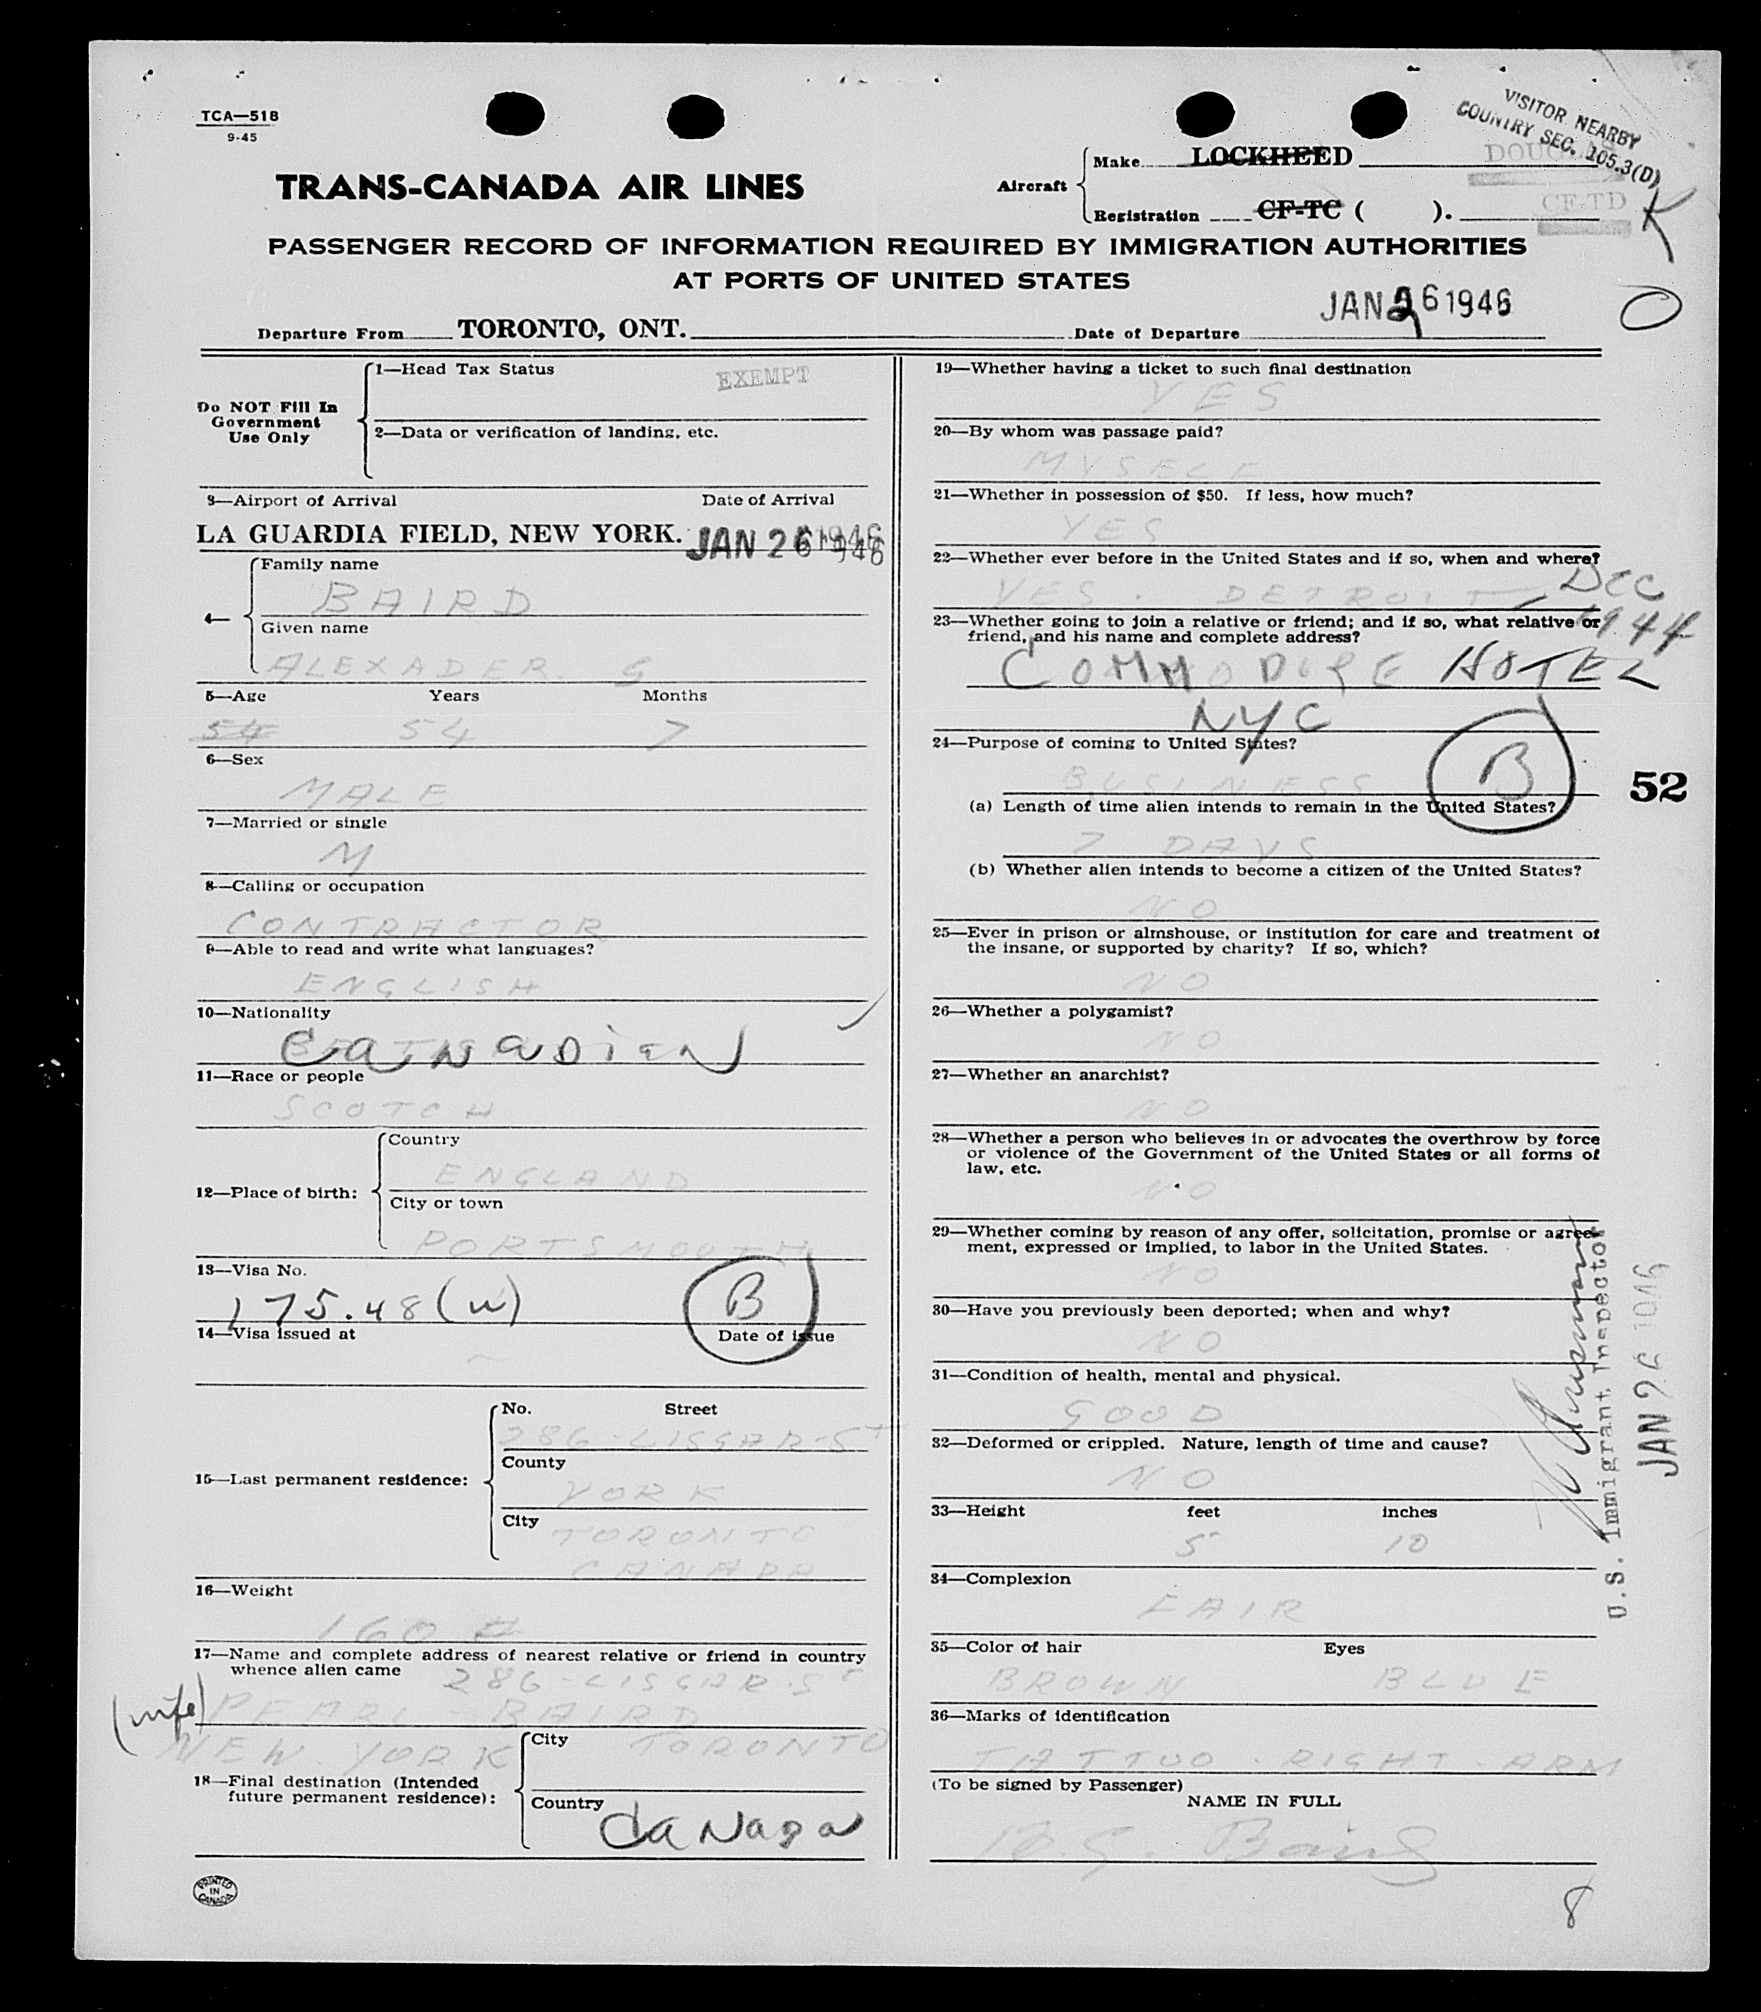 TCA—518
9-45
VISITOR NEARBY
COUNTRY SEC. 105.3(D)
TRANS-CANADA AIR LINES
Aircraft
Make LOCKHEED DOUGLAS
Registration CF-TC ( ). CF-TD
K
PASSENGER RECORD OF INFORMATION REQUIRED BY IMMIGRATION AUTHORITIES
AT PORTS OF UNITED STATES
Departure From TORONTO, ONT. Date of Departure JAN 26 1946
O
Do NOT Fill In
Government
Use Only
1—Head Tax Status EXEMPT
2—Data or verification of landing, etc.
3—Airport of Arrival Date of Arrival
LA GUARDIA FIELD, NEW YORK. JAN 26 1946
4—
Family name
BAIRD
Given name
ALEXADER. G
5—Age Years Months
54 54 7
6—Sex
MALE
7—Married or single
M
8—Calling or occupation
CONTRACTOR
9—Able to read and write what languages?
ENGLISH
10—Nationality
CANADIAN
11—Race or people
SCOTCH
12—Place of birth:
Country
ENGLAND
City or town
PORTSMOUTH
13—Visa No.
175.48 (w) B
14—Visa issued at Date of issue
15—Last permanent residence:
No. Street
286-LISGAR-ST
County
YORK
City TORONTO
CANADA
16—Weight
160 #
17—Name and complete address of nearest relative or friend in country
whence alien came 286-LISGAR-ST
(wife) PEARL - BAIRD
NEW YORK
City TORONTO
18—Final destination (Intended
future permanent residence):
Country
CaNaDa
PRINTED
IN
CANADA
19—Whether having a ticket to such final destination
YES
20—By whom was passage paid?
MYSELF
21—Whether in possession of $50. If less, how much?
YES
22—Whether ever before in the United States and if so, when and where?
YES. DETROIT - DEC
1944
23—Whether going to join a relative or friend; and if so, what relative or
friend, and his name and complete address?
COMMODORE HOTEL
NYC
24—Purpose of coming to United States?
BUSINESS B
52
(a) Length of time alien intends to remain in the United States?
7 DAYS
(b) Whether alien intends to become a citizen of the United States?
NO
25—Ever in prison or almshouse, or institution for care and treatment of
the insane, or supported by charity? If so, which?
NO
26—Whether a polygamist?
NO
27—Whether an anarchist?
NO
28—Whether a person who believes in or advocates the overthrow by force
or violence of the Government of the United States or all forms of
law, etc.
NO
29—Whether coming by reason of any offer, solicitation, promise or agree-
ment, expressed or implied, to labor in the United States.
NO
30—Have you previously been deported; when and why?
NO
31—Condition of health, mental and physical.
GOOD
32—Deformed or crippled. Nature, length of time and cause?
NO
33—Height feet inches
5 10
34—Complexion
FAIR
35—Color of hair Eyes
BROWN BLUE
36—Marks of identification
TATTOO - RIGHT - ARM
(To be signed by Passenger)
NAME IN FULL
A. G. Baird
U.S. Immigrant Inspector
JAN 26 1946
8